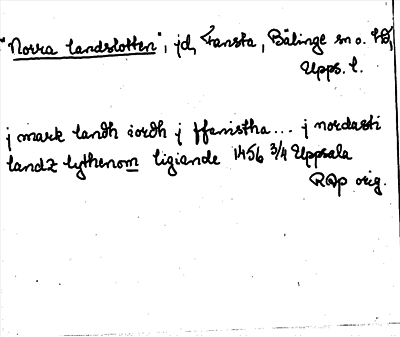 "Norra landslotten", jd, Fansta, Bälinge sn o. hd,
Upps. l.
j mark landh iordh j ffanistha... j nordasti
landz lythenom ligiande 1456 3/4 Uppsala
RAp orig.